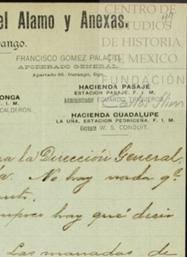 el Alamo y Anexas,
urango.
CENTRO DE
ESTUDIOS
DE HISTORIA
DE MEXICO
FUNDACIÓN
FRANCISCO GOMEZ PALACIO
APODERADO GENERAL.
Apartado 66. Durango, Dgo.
HACIENDA PASAJE
ESTACION PASAJE, F. I. M.
Administrador EDUARDO
ONGA
F. I. M.
CALDERÓN.
HACIENDA GUADALUPE
LA UNA, ESTACION PEDRICEÑA, F. I. M.
Gerente W. S. CONDUIT.
la Dirección General,
No hay nada q
hay que decir
Las manadas de